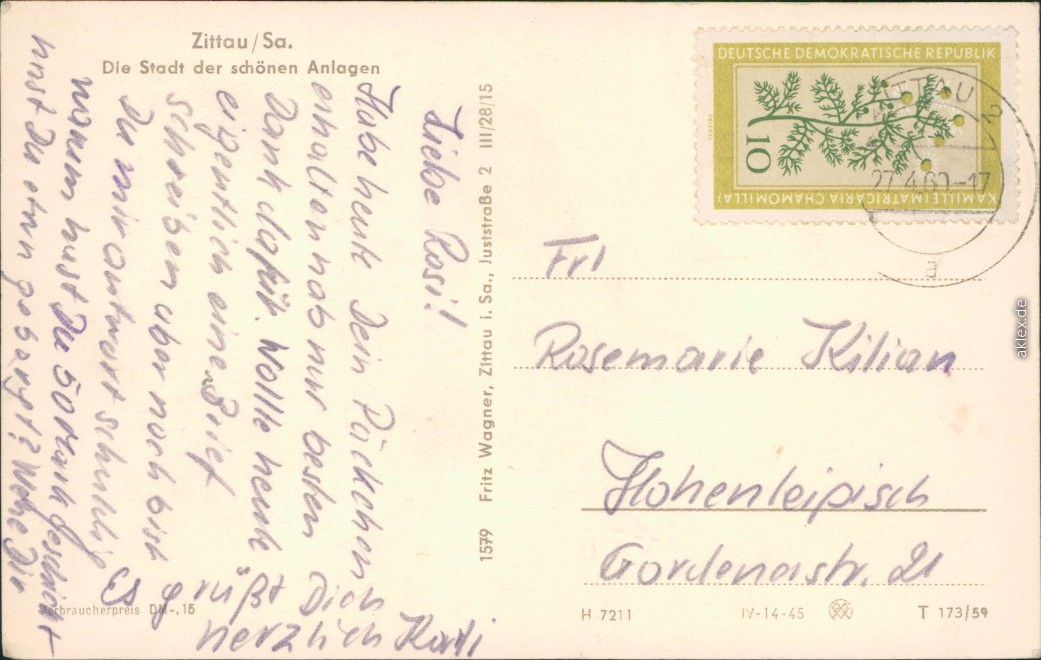 Zittau/Sa.
Die Stadt der schönen Anlagen
Liebe Rosi!
Habe heute Dein Päckchen
erhalten hab nur besten
Dank dafür. Wollte heute
eigentlich einen Brief
schreiben aber noch bist
Du mir antwort schuldig
warum hast Du 50 Mark geschickt
hast Du etwa geborgt? Wehe Dir
Es grüßt Dich
herzlich Karli
Verbraucherpreis DM -,15
1579 Fritz Wagner, Zittau i. Sa., Juststraße 2 III/28/15
DEUTSCHE DEMOKRATISCHE REPUBLIK
10
KAMILLE (MATRICARIA CHAMOMILLA)
ZITTAU 2
27.4.60-17
a
Frl
Rosemarie Kilian
Hohenleipisch
Gordenerstr. 21
H 7211
IV-14-45
T 173/59
aklex.de